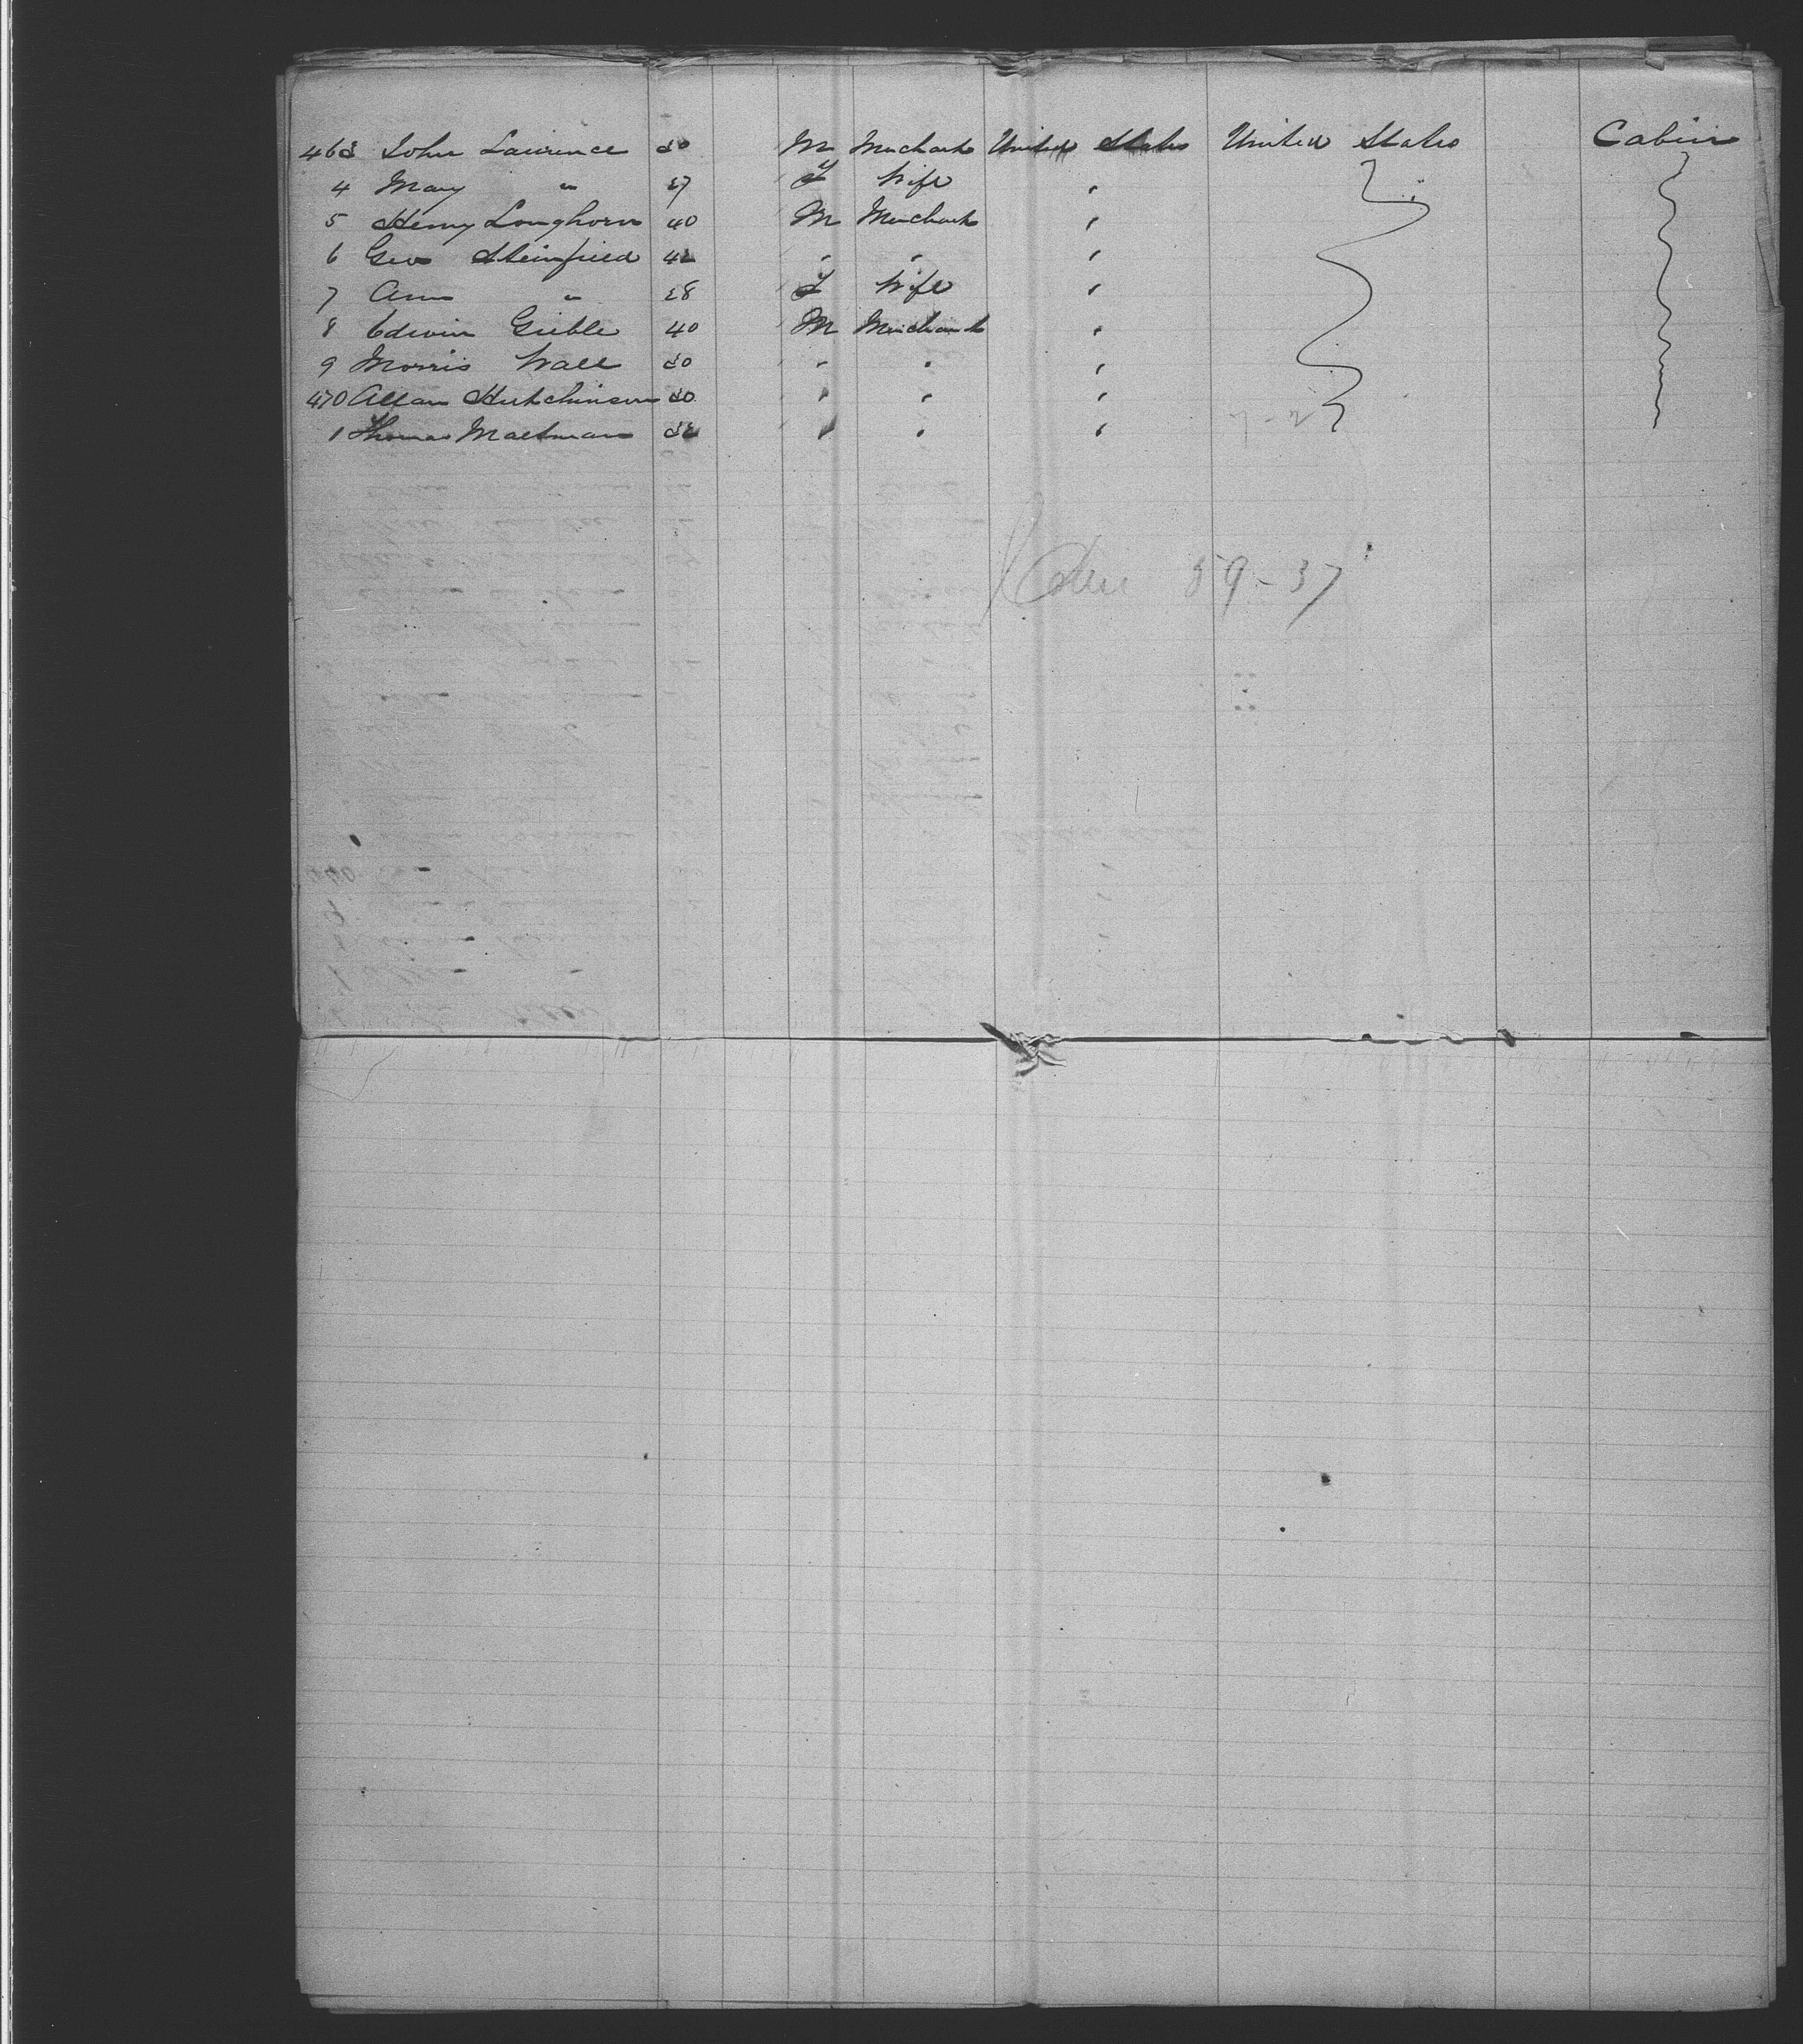 463 John Lawrence 30 M Merchant United States United States Cabin
4 Mary " 27 F Wife "
5 Henry Longhorn 40 M Merchant "
6 Geo Steinfield 42 " " "
7 Ann " 28 F Wife "
8 Edwin Gieble 40 M Merchant "
9 Morris Wall 30 " " "
470 Allan Hutchinson 30 " " "
1 Thomas Maltman 32 " " "
59-37